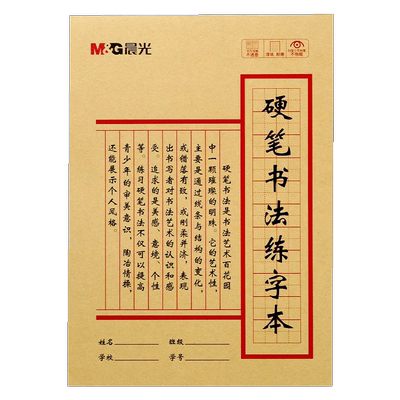 M&G晨光
硬笔书法练字本
硬笔书法是书法艺术百花园
中一颗璀璨的明珠。它的艺术性，
主要是通过线条与结构的变化，
或错落有致，或刚柔并济，表现
出书写者对书法艺术的认识和感
受。追求的是美感、意境、个性
等。练习硬笔书法不仅可以提高
青少年的审美意识，陶冶情操，
还能展示个人风格。
姓名 班级
学校 学号